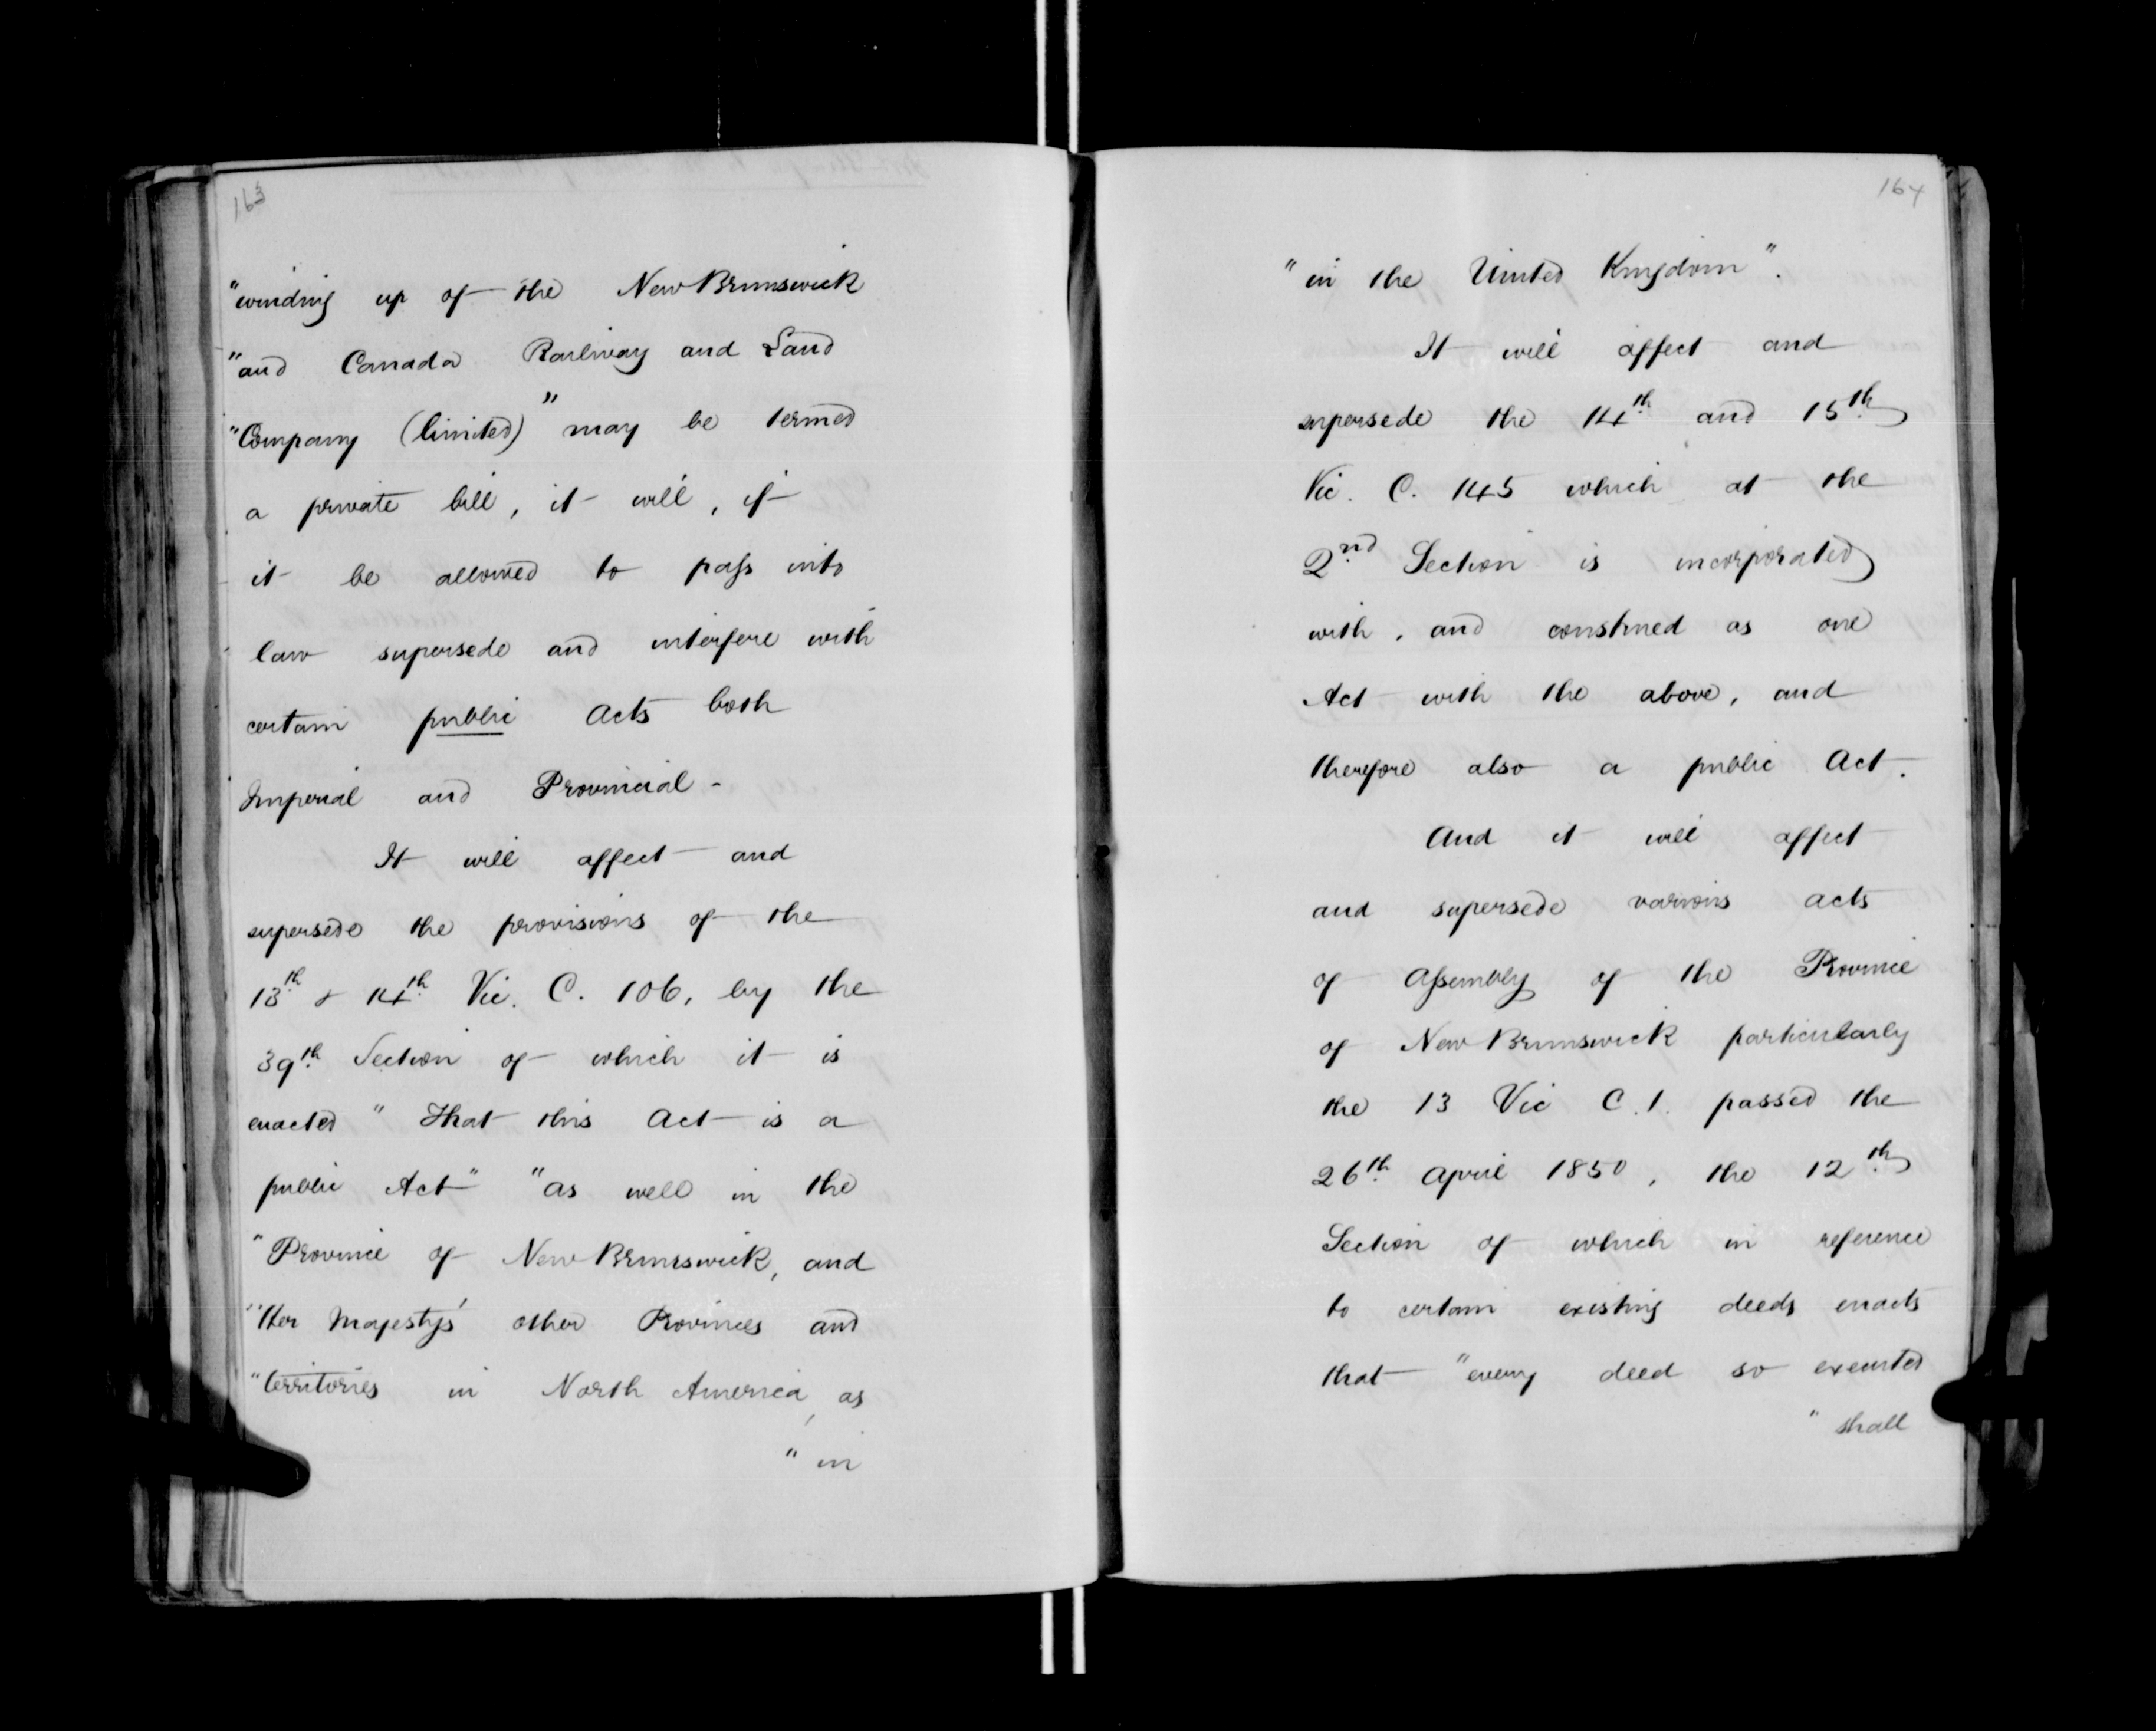 163
"winding up of the New Brunswick
"and Canada Railway and Land
"Company (limited)" may be termed
a private bill, it will, if
it be allowed to pass into
law supersede and interfere with
certain public Acts both
Imperial and Provincial -
It will affect and
supersede the provisions of the
13th & 14th Vic. C. 106, by the
39th Section of which it is
enacted "That this Act is a
public Act" "as well in the
"Province of New Brunswick, and
"Her Majesty's other Provinces and
"territories in North America, as
"in
164
"in the United Kingdom".
It will affect and
supersede the 14th and 15th
Vic. C. 145 which at the
2nd Section is incorporated
with, and construed as one
Act with the above, and
therefore also a public Act.
And it will affect
and supersede various acts
of Assembly of the Province
of New Brunswick particularly
the 13 Vic C.1. passed the
26th April 1850, the 12th
Section of which in reference
to certain existing deeds enacts
that "every deed so executed
"shall